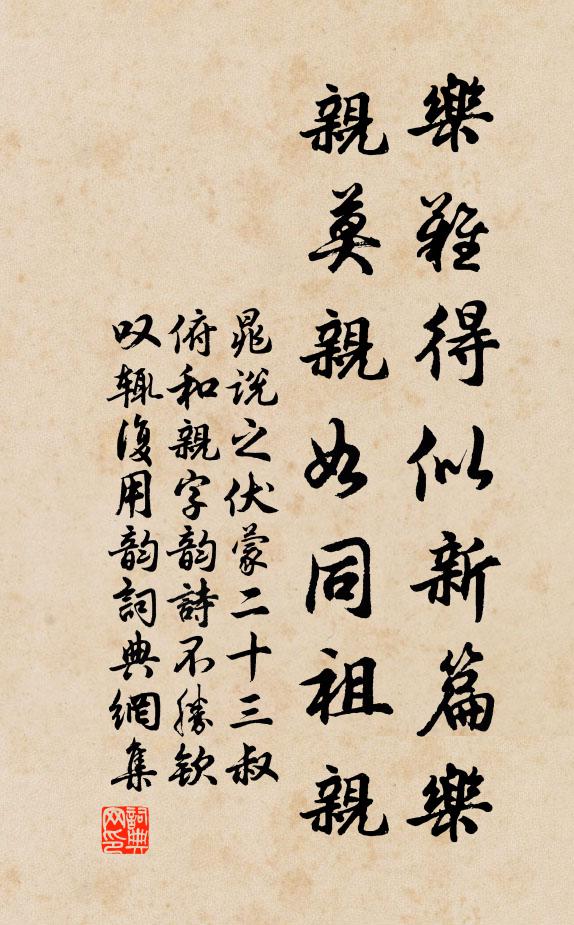 樂難得似新篇樂
親莫親如同祖親
晁说之伏蒙二十三叔
俯和親字韵詩不勝欽
叹輒復用韵詞典網集
詞典
网印